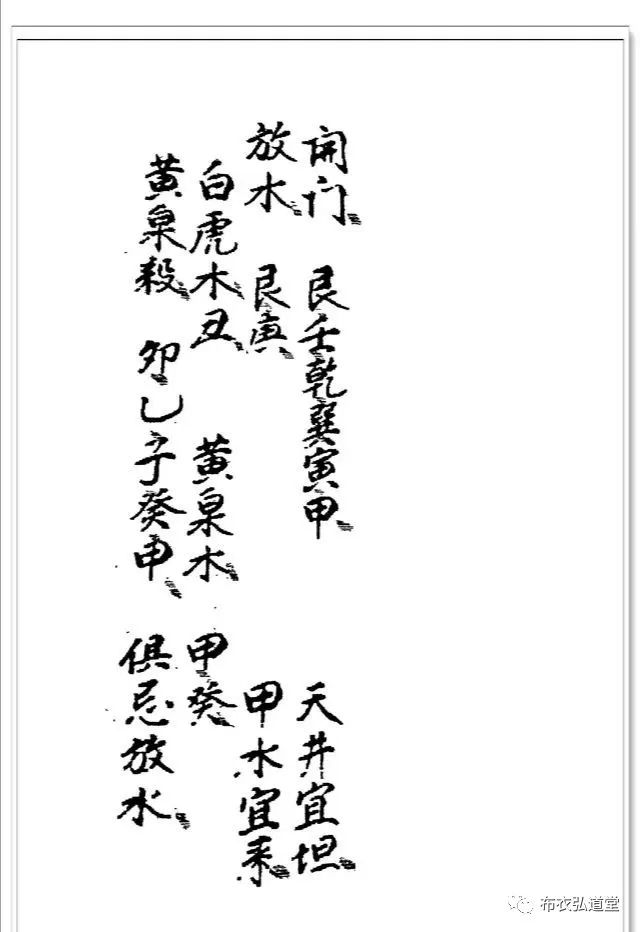 開门 艮壬乾巽寅甲 天井宜坦
放水 艮寅 甲水宜来
白虎木丑 黄泉木 甲癸
黄泉殺 卯乙子癸申 俱忌放水
布衣弘道堂